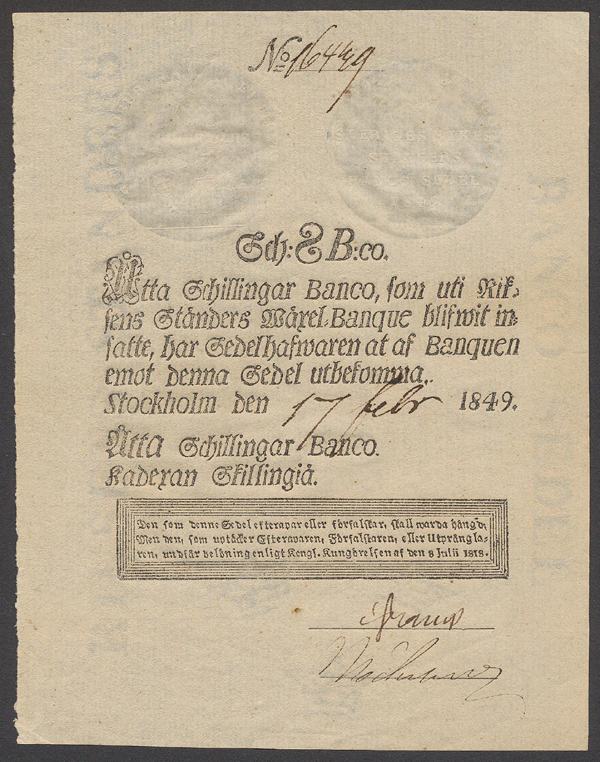 No 16449
Sch: 8 B:co.
Åtta Schillingar Banco, som uti Rik-
sens Ständers Wäxel-Banque blifwit in-
satte, har Sedelhafwaren at af Banquen
emot denna Sedel utbekomma.
Stockholm den 17 febr 1849.
Åtta Schillingar Banco.
Kadexan Skillingiä.
Den som denne Sedel efterapar eller förfalskar, skall warda hängd;
Men den, som uptäcker Efteraparen, Förfalskaren, eller Utprångla-
ren, undfår belöning enligt Kongl. Kungörelsen af den 8 Julii 1818.